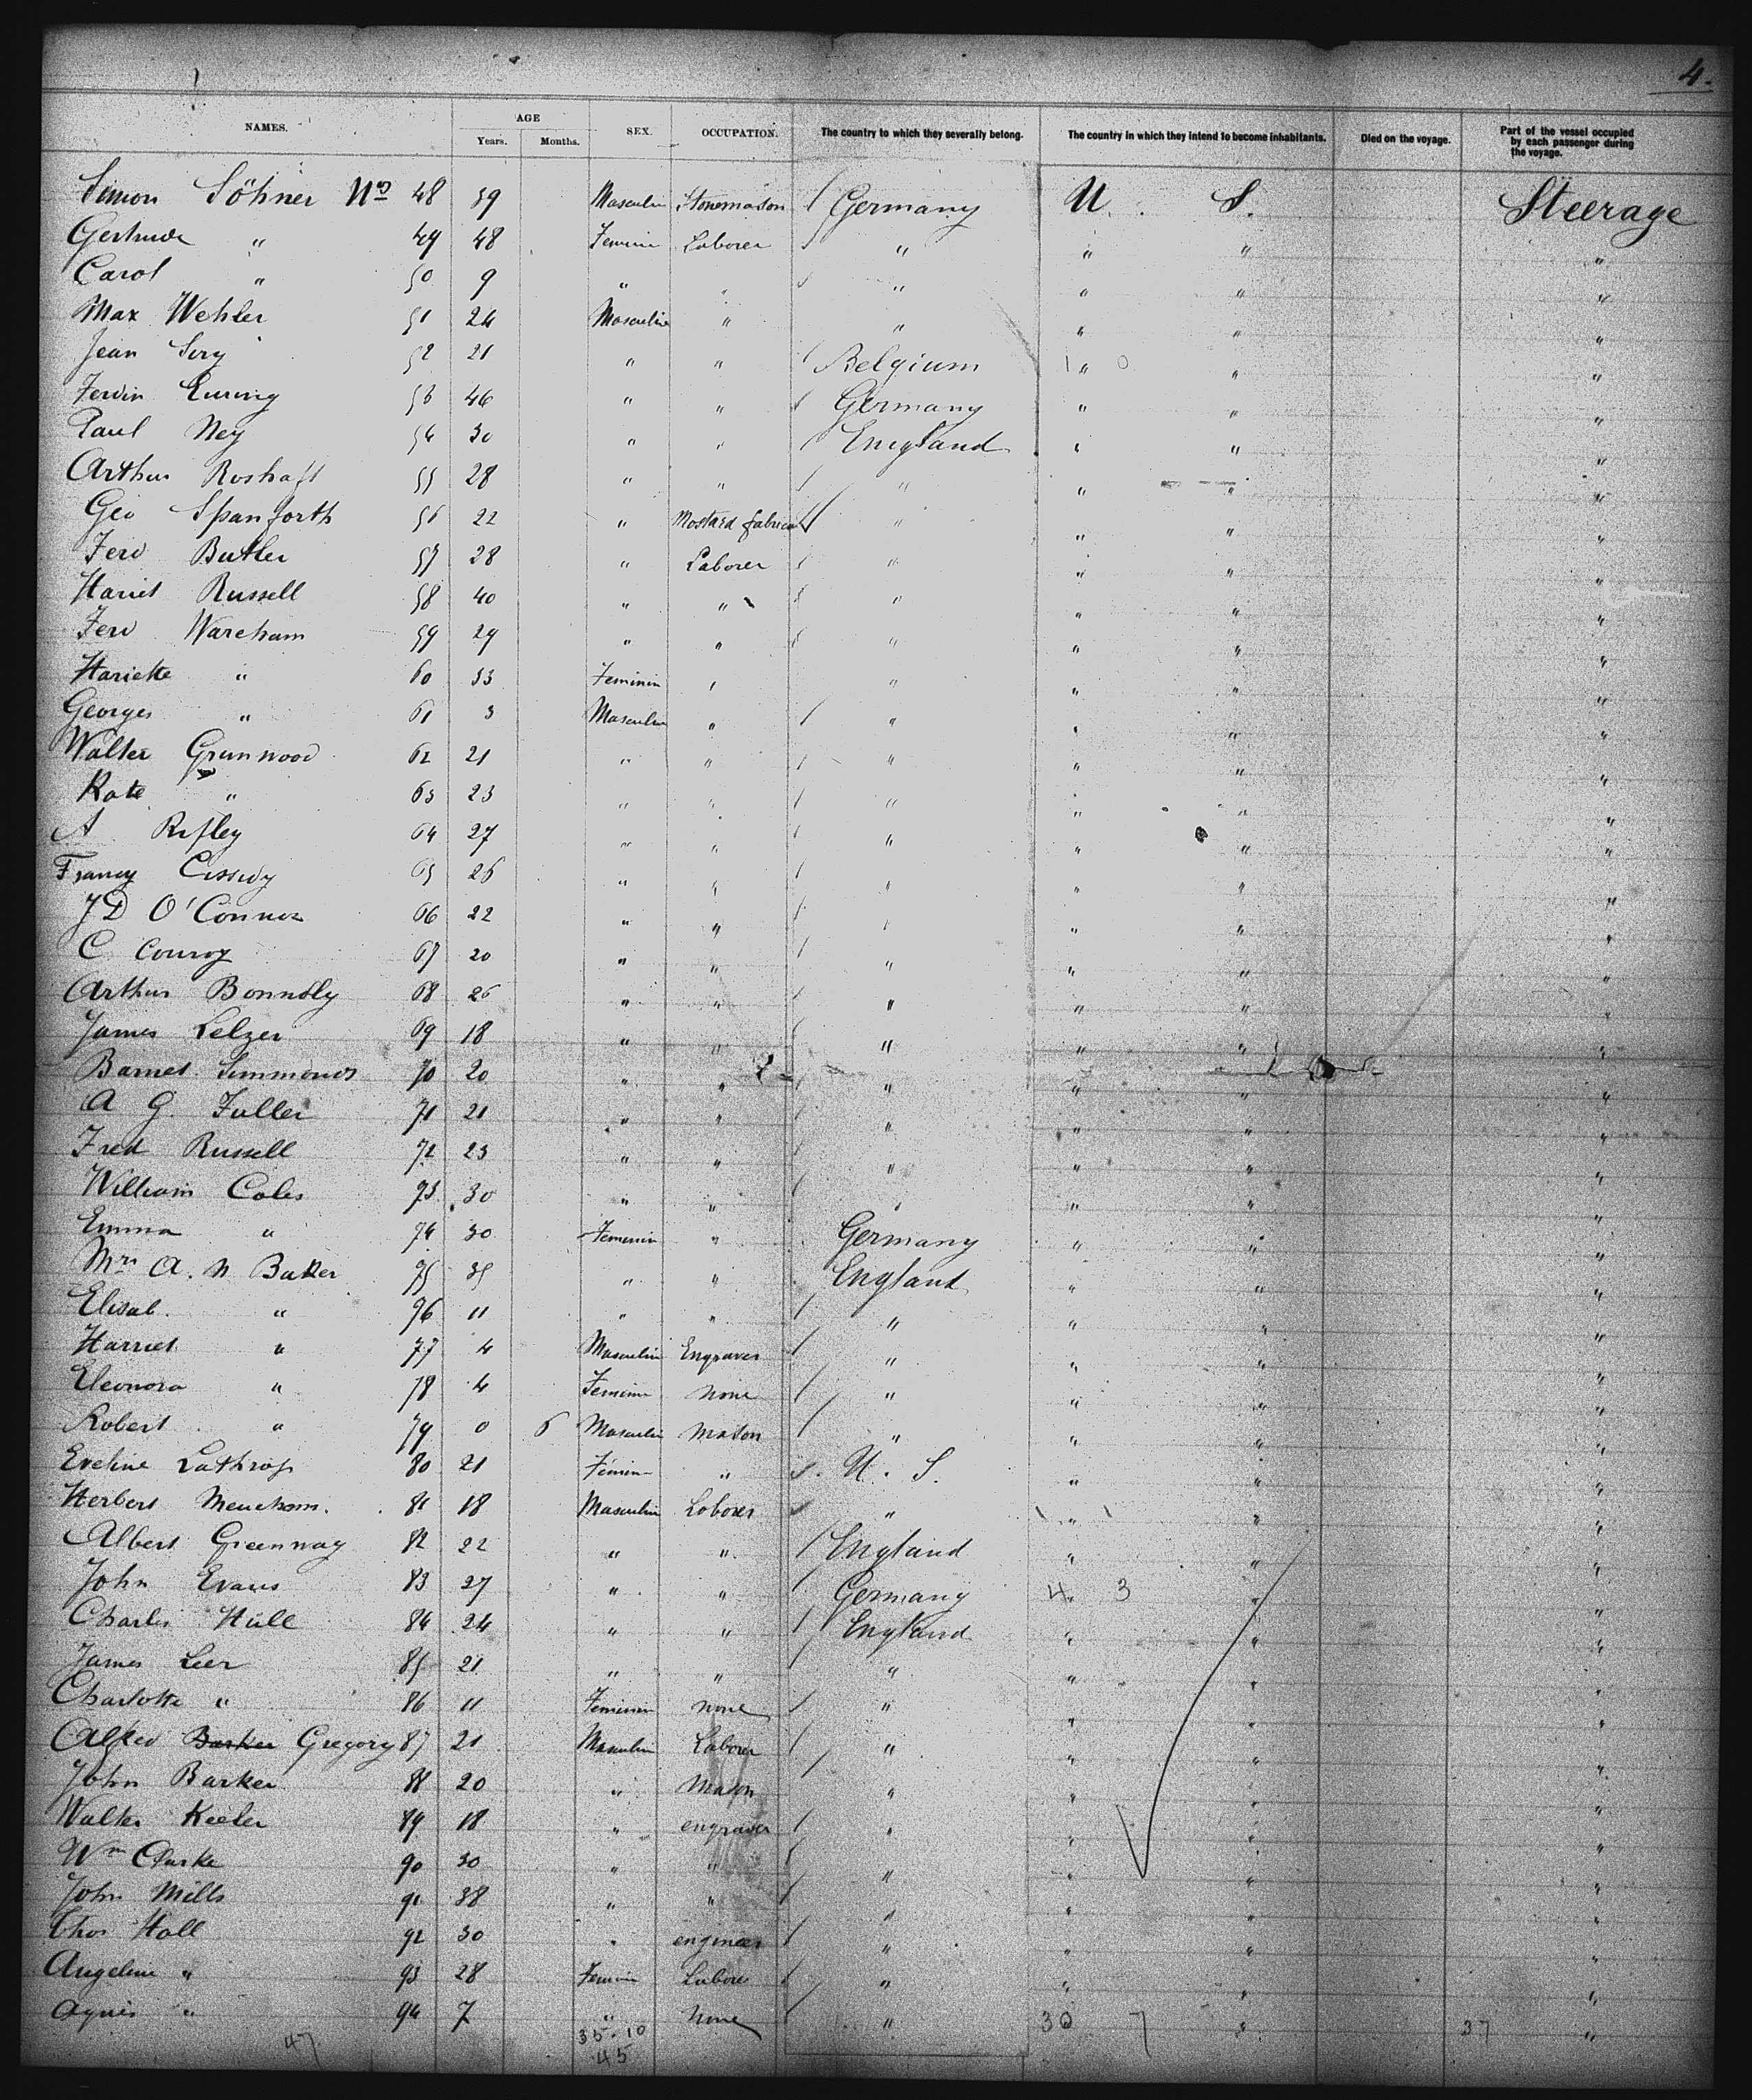 4.
NAMES. AGE Years. Months. SEX. OCCUPATION. The country to which they severally belong. The country in which they intend to become inhabitants. Died on the voyage. Part of the vessel occupied by each passenger during the voyage.
Simon Söhner No 48 39 Masculin Stonemason Germany U. S. Steerage
Gertrude " 49 48 Feminin Laborer " " " "
Carol " 50 9 " " " " " "
Max Wehler 51 24 Masculin " " " " "
Jean 52 21 " " Belgium " " "
53 46 " " Germany " " "
Paul Ney 54 30 " " England " " "
Arthur 55 28 " " " " " "
Geo Spanforth 56 22 " Mostard " " " "
Ferd Butler 57 28 " Laborer " " " "
Russell 58 40 " " " " " "
Ferd Wareham 59 29 " " " " " "
Hariette " 60 33 Feminin " " " " "
Georges " 61 3 Masculin " " " " "
Walter Grunwood 62 21 " " " " " "
Kate " 63 23 " " " " " "
A 64 27 " " " " " "
65 26 " " " " " "
J D O'Connor 66 22 " " " " " "
C. Conroy 67 20 " " " " " "
Arthur 68 26 " " " " " "
James 69 18 " " " " " "
Barnet Simmonds 70 20 " " " " " "
A G. Fuller 71 21 " " " " " "
Fred Russell 72 23 " " " " " "
William Coles 73 30 " " " " " "
Emma " 74 30 Feminin " Germany " " "
Mrs A. N Baker 75 35 " " England " " "
Elisab. " 76 11 " " " " " "
Harriet " 77 4 Masculin Engraver " " " "
Eleonora " 78 4 Feminin None " " " "
Robert " 79 0 6 Masculin Mason " " " "
Eveline Lathrop 80 21 Feminin " U. S. " " "
Herbert 81 18 Masculin Laborer " " " "
Albert Greenway 82 22 " " England " " "
John Evans 83 27 " " Germany 4 3 " " "
Charles Hull 84 24 " " England " " "
James Leer 85 21 " " " " " "
Charlotte " 86 11 Feminin None " " " "
Alfred Barker Gregory 87 21 Masculin Laborer " " " "
John Barker 88 20 " Mason " " " "
Walter Keeler 89 18 " engraver " " " "
Wm Clarke 90 30 " " " " " "
John Mills 91 38 " " " " " "
Thos Hall 92 30 " engineer " " " "
Angeline " 93 28 Feminin Laborer " " " "
Agnes " 94 7 " None " 30 7 " 37 "
47 35. 10
45